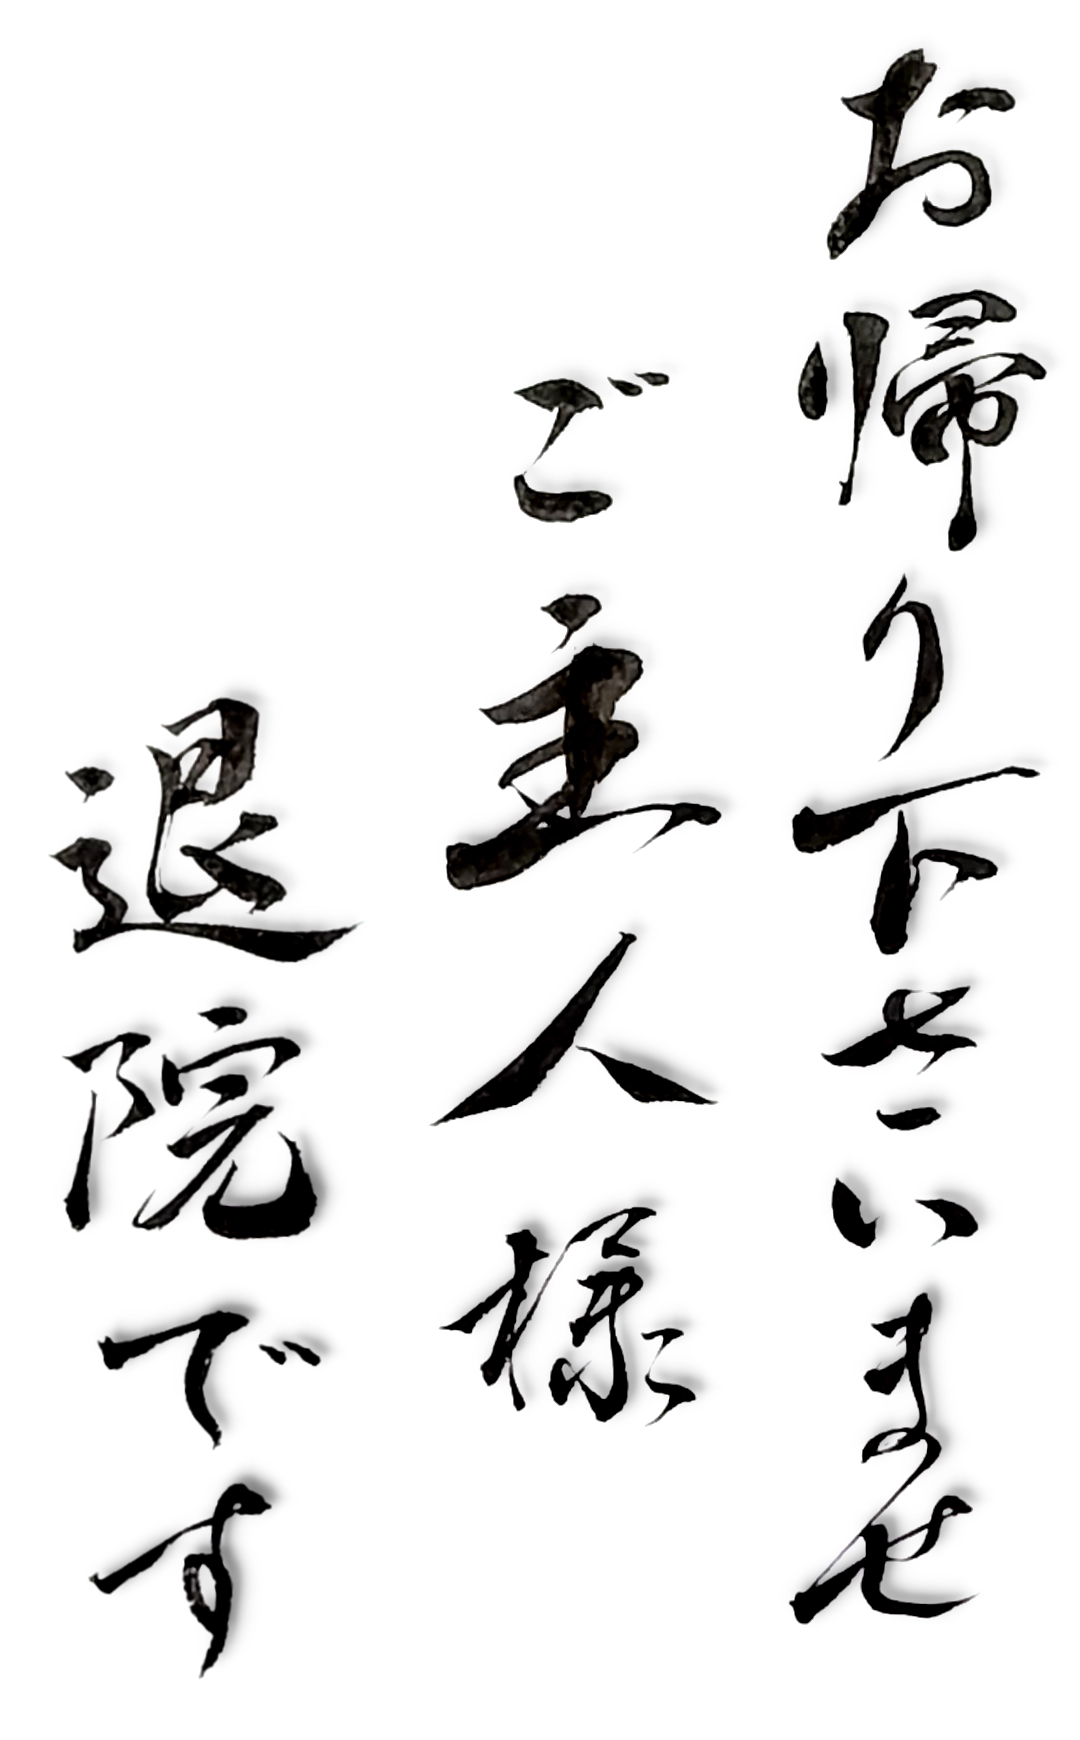 お帰り下さいませ
ご主人様
退院です